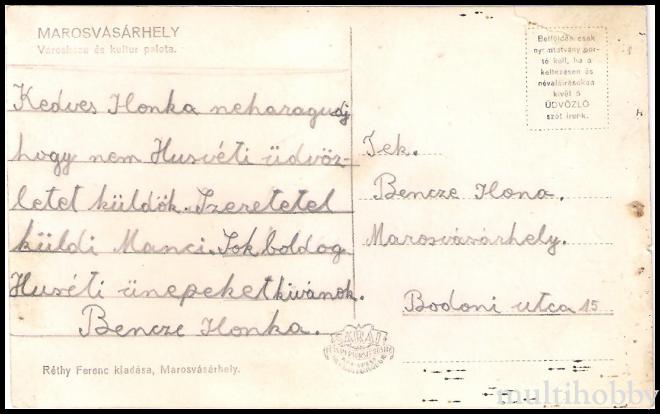 MAROSVÁSÁRHELY
Városháza és kultur palota.
Kedves Ilonka neharagudj
hogy nem Husvéti üdvöz-
letet küldök. Szeretetel
küldi Manci. Sok boldog
Huséti ünepeket kivánok.
Bencze Ilonka.
Réthy Ferenc kiadása, Marosvásárhely.
Belföldön csak
nyomtatvány por-
tó kell, ha a
keltezésen és
névaláirásokon
kivül 5
ÜDVÖZLŐ
szót irunk.
Tek.
Bencze Ilona.
Marosvásárhely.
Bodoni utca 15
multihobby